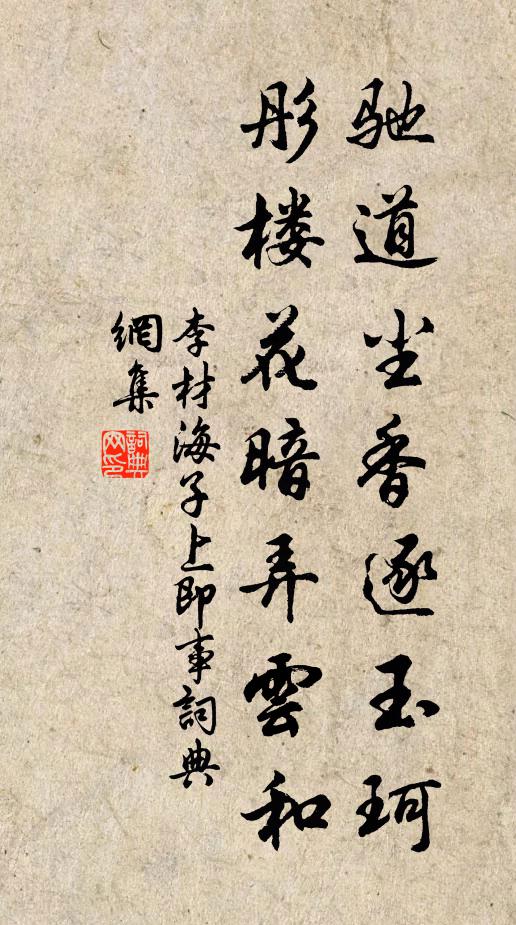 驰道尘香逐玉珂
彤楼花暗弄雲和
李材海子上即事詞典
網集
詞典
网印